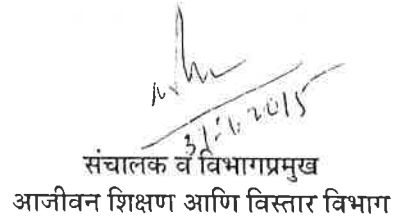 संचालक व विभागप्रमुख
आजीवन शिक्षण आणि विस्तार विभाग